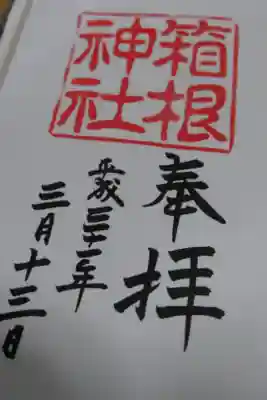 奉拝
箱根
神社
平成二十二年
三月十三日